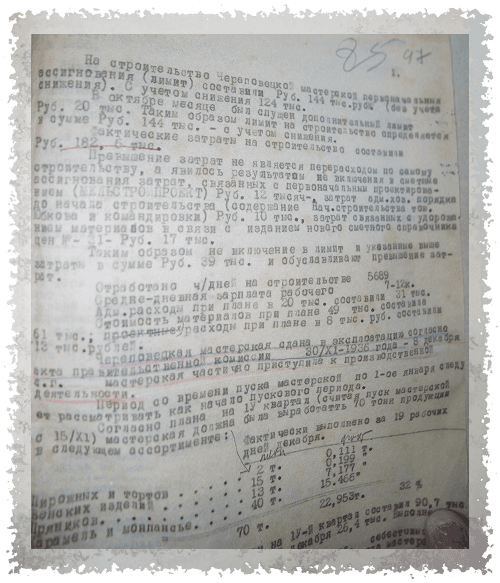 85 97
1.
На строительство Череповецкой мастерской первоначальные
ассигнования (лимит) составили Руб. 144 тыс.руб. (без учета
снижения). С учетом снижения 124 тыс.
В октябре месяце был спущен дополнительный лимит
Руб. 20 тыс. Таким образом лимит на строительство определяется
в сумме Руб. 144 тыс. - с учетом снижения.
Фактические затраты на строительство составили
Руб. 182, 6 тыс.
Превышение затрат не является перерасходом по самому
строительству, а явилось результатом не включения в сметные
ассигнования затрат, связанных с первоначальным проектирова-
нием Руб. 12 тысяч, затрат адм.хоз. порядка
до начала строительства (содержание нач.строительства тов.
и командировки) Руб. 10 тыс., затрат связанных с удорожа-
нием материалов в связи с изданием нового сметного справочника
цен Руб. 17 тыс.
Таким образом не включение в лимит и указанные выше
затраты в сумме Руб. 39 тыс. и обуславливают превышение зат-
рат.
Отработано ч/дней на строительстве 5689
Средне-дневная зарплата рабочего 7-12к.
Адм.расходы при плане в 20 тыс. составили 31 тыс.
Стоимость материалов при плане 49 тыс. составила
61 тыс., расходы при плане в 8 тыс. руб. составили
13 тыс.рублей.
Череповецкая мастерская сдана в эксплоатацию согласно
акта правительственной комиссии 30/XI-1936 года - 8 декабря
с.г. мастерская частично приступила к производственной
деятельности.
Период со времени пуска мастерской по 1-ое января следу
ет рассматривать как начало пускового периода.
Согласно плана на IУ квартал (считая пуск мастерской
с 15/XI) мастерская должна была выработать 70 тонн продукции
в следующем ассортименте:
Фактически выполнено за 19 рабочих
дней декабря.
Пирожных и тортов . . . . . 2 т. 0,111 т.
Венских изделий . . . . . 15 т. 0,199 "
Пряников. . . . . . 13 т. 7,177 "
Карамель и монпансье. . . . 40 т. 15.466"
70 т. 22,953т. 32 %
на IУ-й квартал составил 90,7 тыс.
декабря 26,4 тыс.